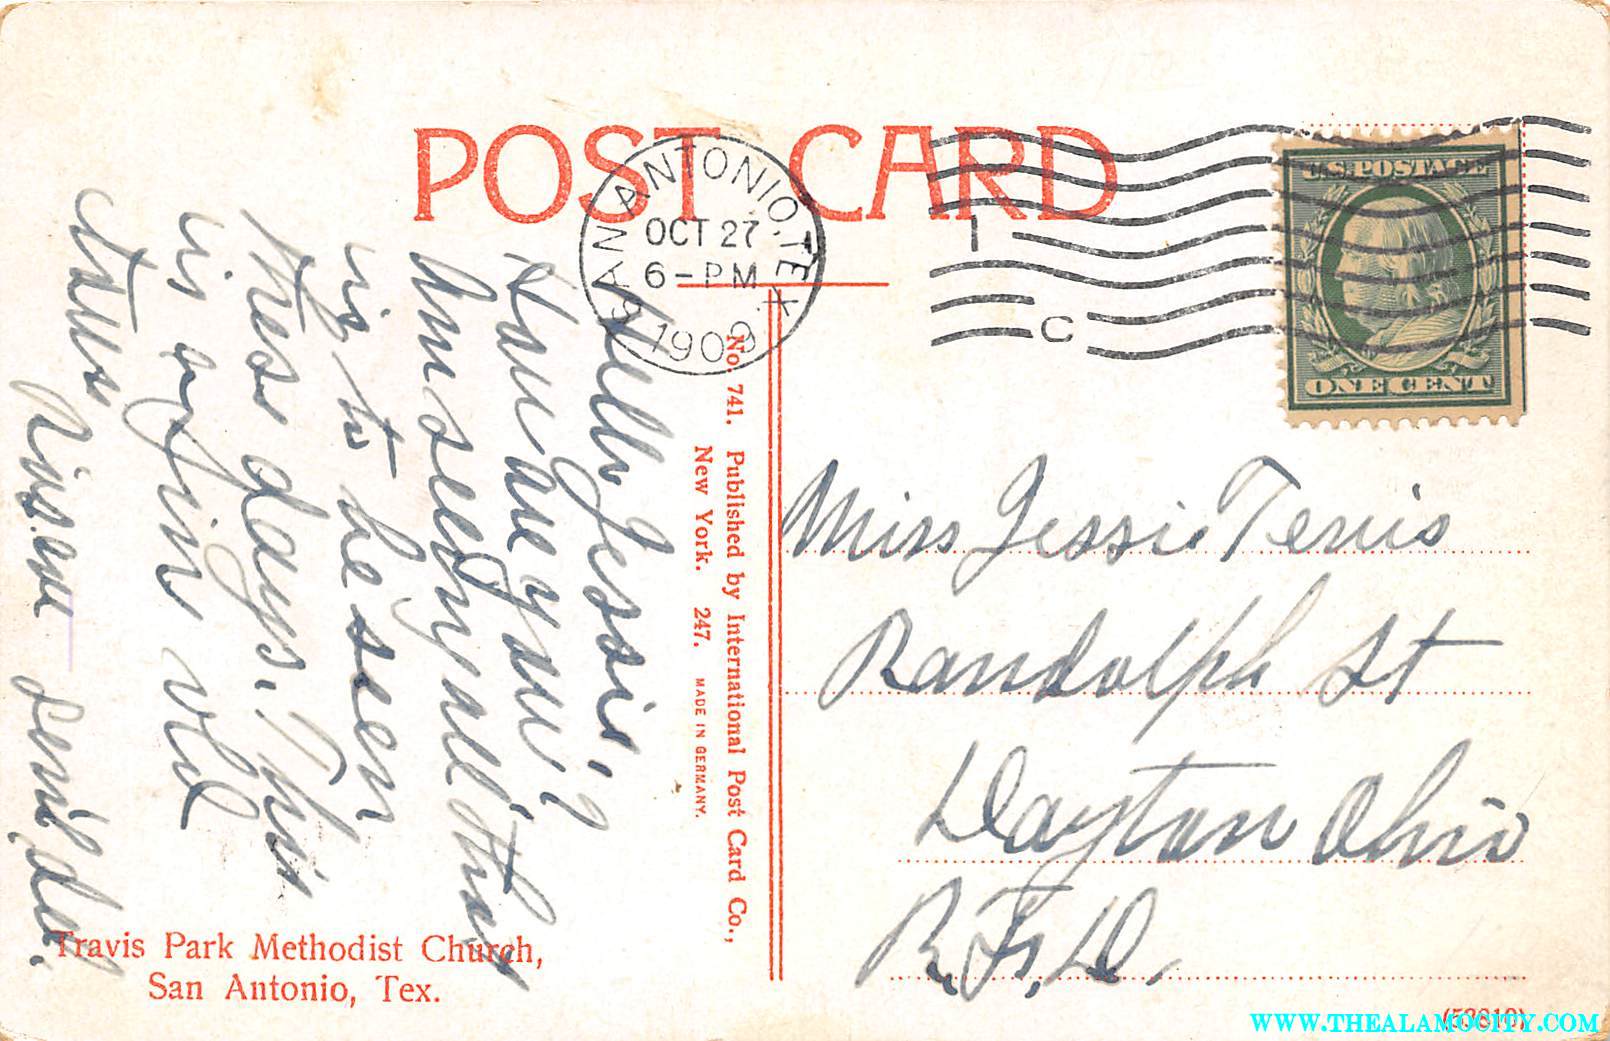 POST CARD
SAN ANTONIO, TEX.
OCT 27
6-PM
1909
1
C
U.S. POSTAGE
ONE CENT
Hello Jessie,
How are you?
Am seeing all that
is to be seen
these days. This
is a fine old
Miss Jessie
Randolph St
Dayton Ohio
R.F.D.
No. 741. Published by International Post Card Co.,
New York. 247. MADE IN GERMANY.
Travis Park Methodist Church,
San Antonio, Tex.
WWW.THEALAMOCITY.COM